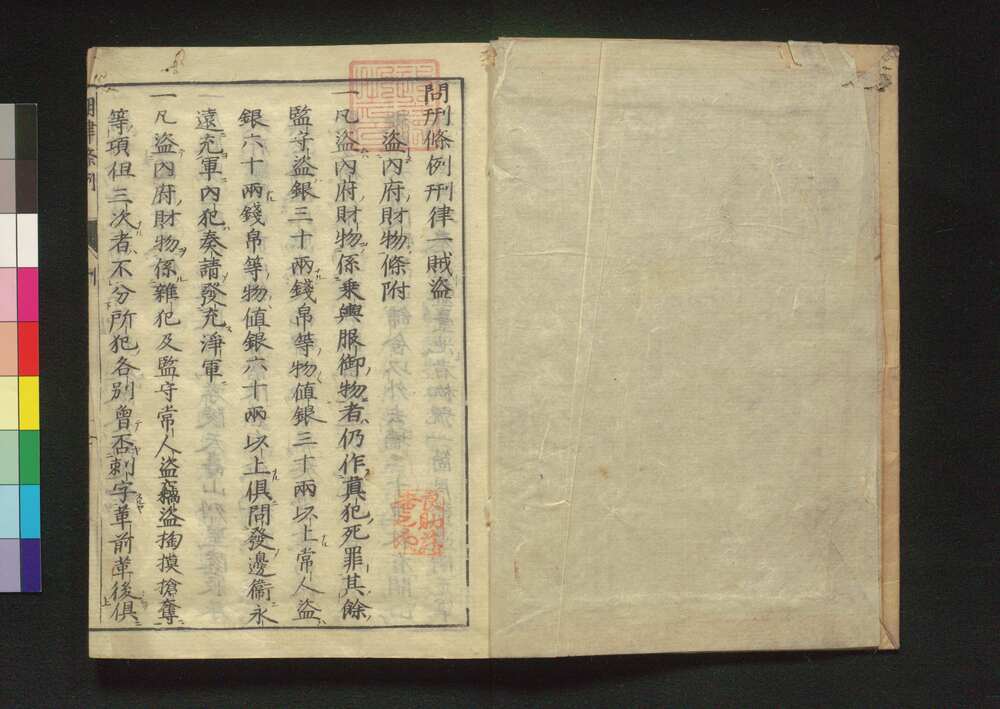 問刑條例刑律一賊盜
盜內府財物條附
一凡盜內府財物係乘輿服御物者仍作真犯死罪其餘
監守盜銀三十兩錢帛等物值銀三十兩以上常人盜
銀六十兩錢帛等物值銀六十兩以上俱問發邊衞永
遠充軍內犯奏請發充淨軍
一凡盜內府財物係雜犯及監守常人盜竊盜掏摸搶奪
等項但三次者不分所犯各別曾否刺字革前革後俱